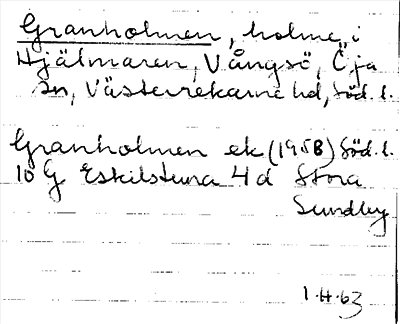 Granholmen, holme i
Hjälmaren, Vångsö, Öja
sn, Västerrekarne hd, Söd. l.
Granholmen ek (1958) Söd. l.
10 G Eskilstuna 4 d Stora
Sundby
1.4.63